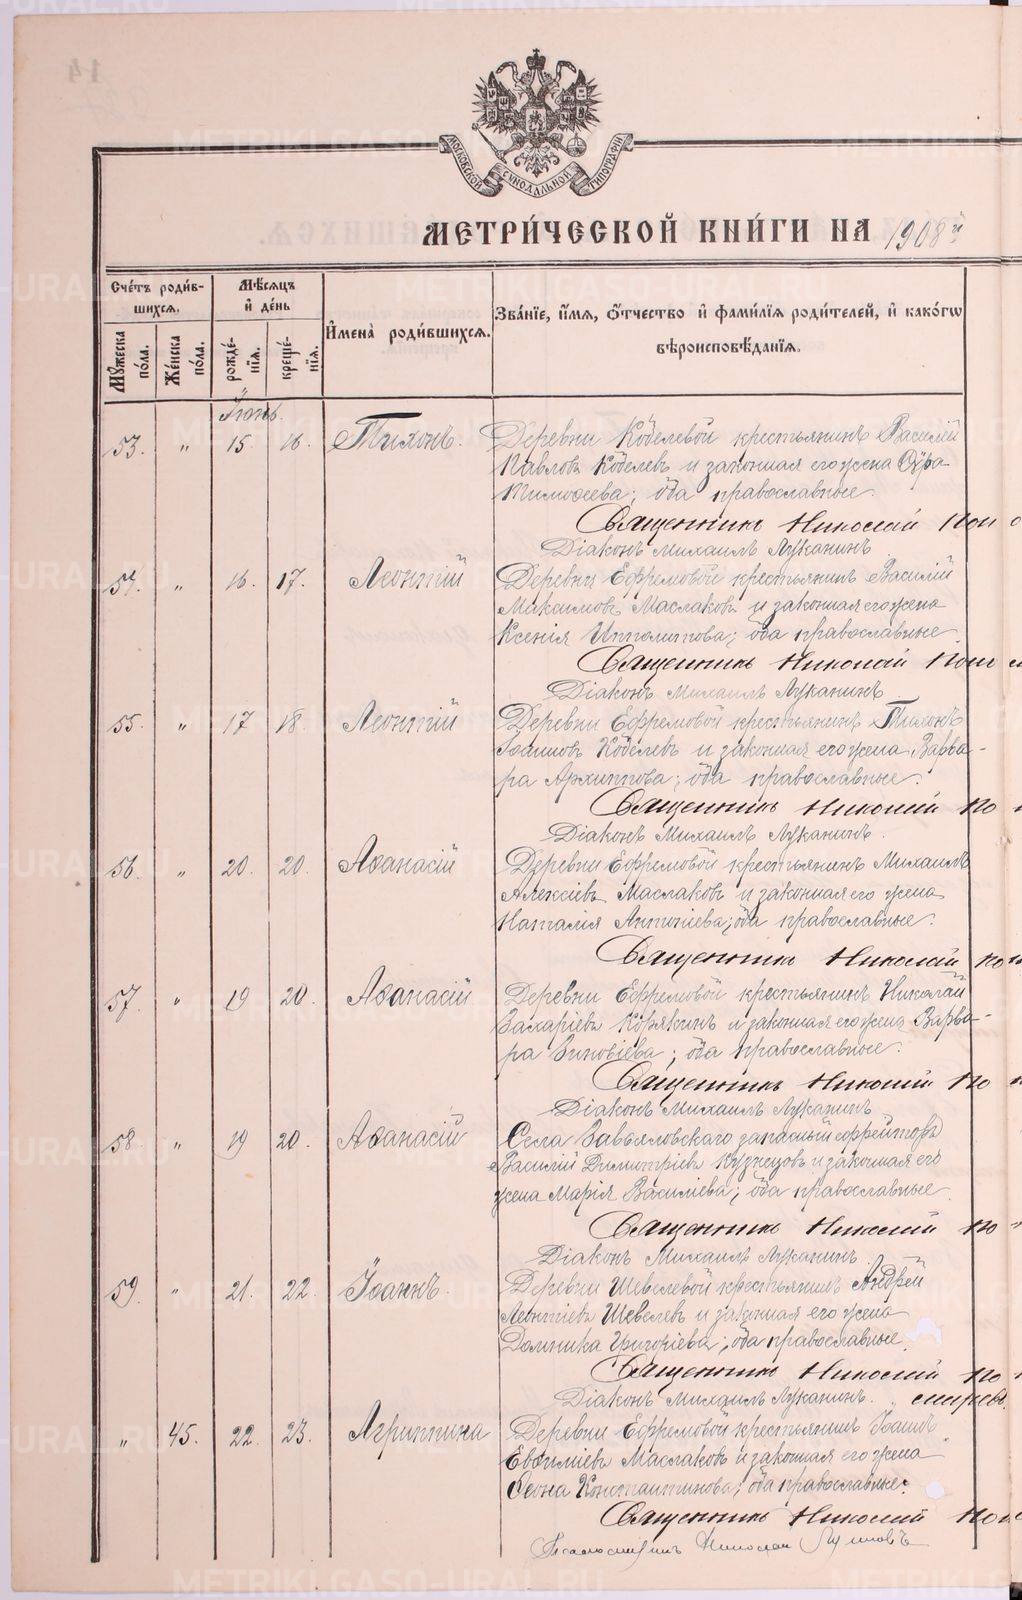 МОСКОВСКОЙ СѴНОДАЛЬНОЙ ТИПОГРАФІИ
МЕТРИ́ЧЕСКОЙ КНИ́ГИ НА 1908й
Сче́тъ роди́в-
шихсѧ.
Мѣ́сѧцъ
и҆ де́нь
И҆мена̀ роди́вшихсѧ.
Зва́нїе, и҆́мѧ, ѻ҆́тчество и҆ фами́лїѧ роди́телей, и҆ како́гѡ
вѣроисповѣ́данїѧ.
Мꙋ́жеска
по́ла.
Же́нска
по́ла.
рожде́-
нїѧ.
креще́-
нїѧ.
Іюнь.
53. " 15. 16. Тихонъ. Деревни Кобелевой крестьянинъ Василій
Павловъ Кобелевъ и законная его жена
Тимоѳеева; оба православные.
Священникъ Николай
Діаконъ Михаилъ Луканинъ
54. " 16. 17. Леонтій Деревни Ефремовой крестьянинъ Василій
Максимовъ Маслаковъ и законная его жена
Ксенія Ипполитова; оба православные.
Священникъ Николай
Діаконъ Михаилъ Луканинъ.
55. " 17 18. Леонтій Деревни Ефремовой крестьянинъ Тихонъ
Іоанновъ Кобелевъ и законная его жена Варва-
ра Архиппова; оба православные.
Священникъ Николай
Діаконъ Михаилъ Луканинъ.
56. " 20. 20. Аѳанасій Деревни Ефремовой крестьянинъ Михаилъ
Алексіевъ Маслаковъ и законная его жена
Наталія Антоніева; оба православные.
Священникъ Николай
57. " 19 20. Аѳанасій Деревни Ефремовой крестьянинъ Николай
Захаріевъ Корякинъ и законная его жена Варва-
ра Зиновіева; оба православные.
Священникъ Николай
Діаконъ Михаилъ Луканинъ
58. " 19 20. Аѳанасій Села Завьяловскаго запасный ефрейторъ
Василій Димитріевъ Кузнецовъ и законная его
жена Марія Василіева; оба православные.
Священникъ Николай
Діаконъ Михаилъ Луканинъ.
59. " 21. 22. Іоаннъ. Деревни Шевелевой крестьянинъ Андрей
Леонтіевъ Шевелевъ и законная его жена
Домника Григоріева; оба православные.
Священникъ Николай
Діаконъ Михаилъ Луканинъ.
" 45. 22. 23. Агриппина Деревни Ефремовой крестьянинъ Іоаннъ
Евѳиміевъ Маслаковъ и законная его жена
Ѳеона Константинова; оба православные.
Священникъ Николай
Псаломщикъ Николай
METRIKI.GASO-URAL.RU